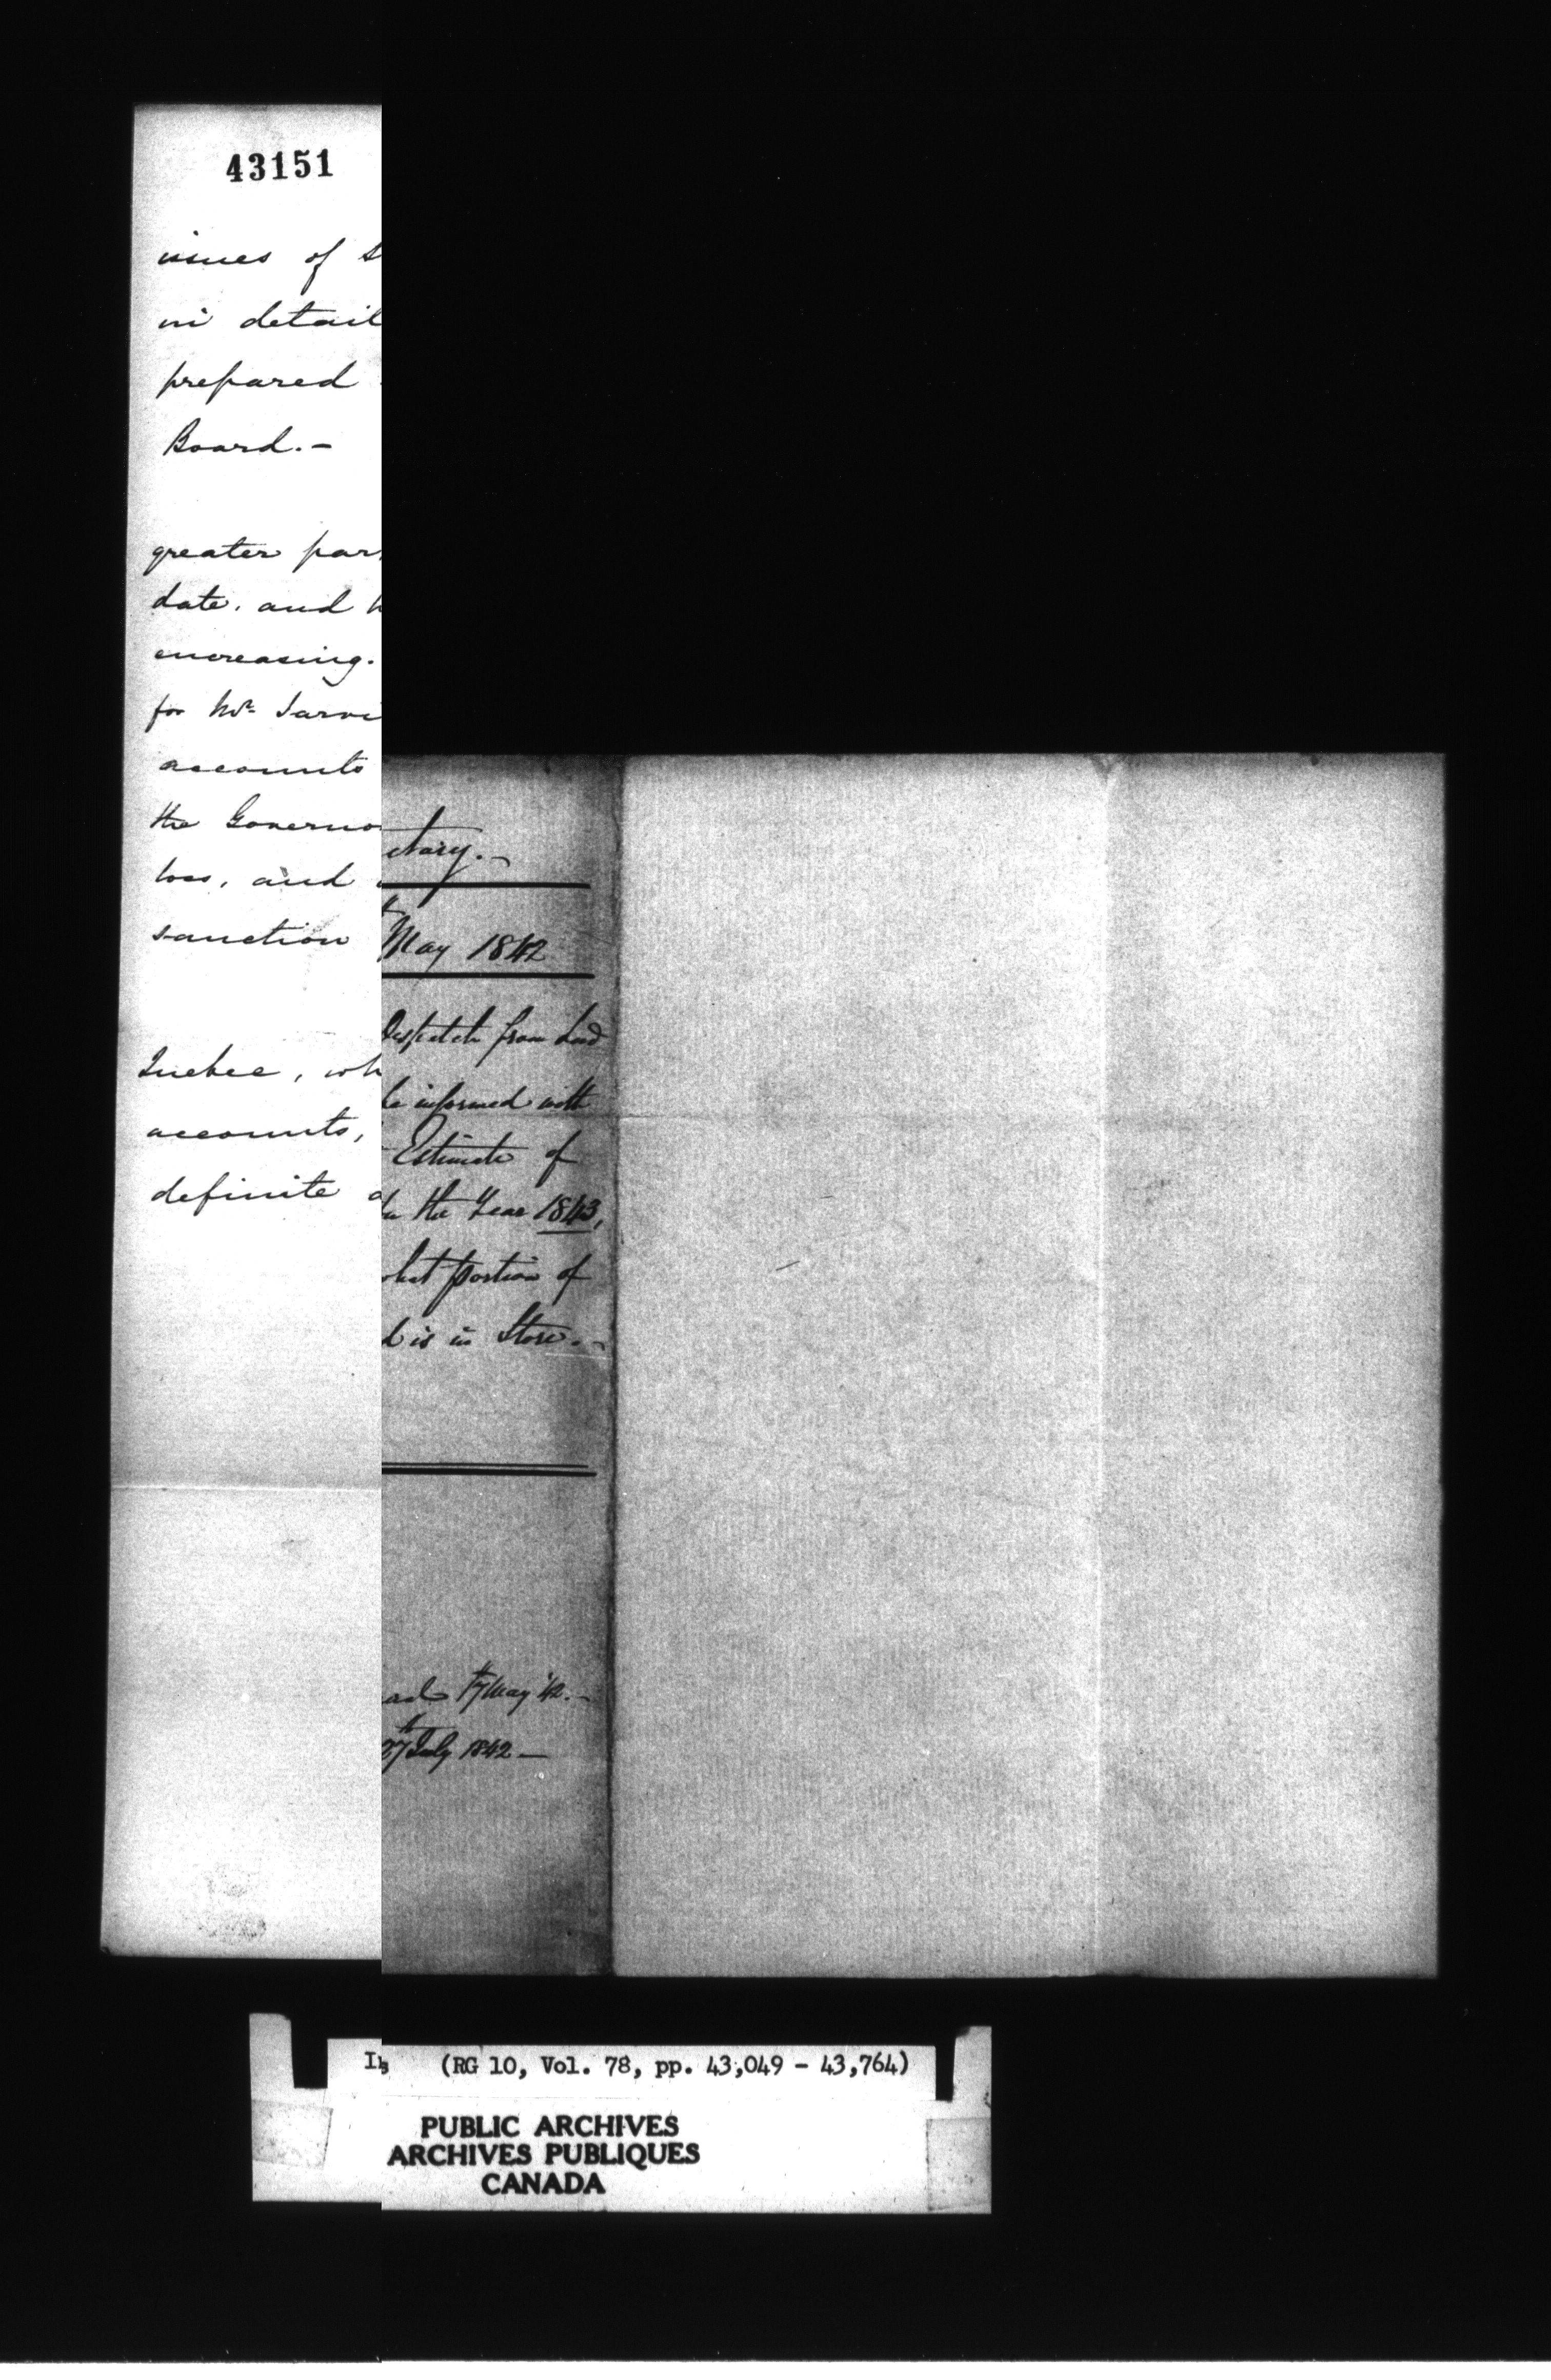 43151
issues of
in detail
prepared
Board.-
greater par
date. and
encreasing.
for Mr. Jarvi
accounts
the Governo
loss, and
sanction
Quebec, wh
accounts,
definite
etary.-
May 1842
Despatch from Lord
be informed with
Estimate of
the Year 1843,
what portion of
is in Store.-
May 42.-
27th July 1842-
(RG 10, Vol. 78, pp. 43,049 - 43,764)
PUBLIC ARCHIVES
ARCHIVES PUBLIQUES
CANADA